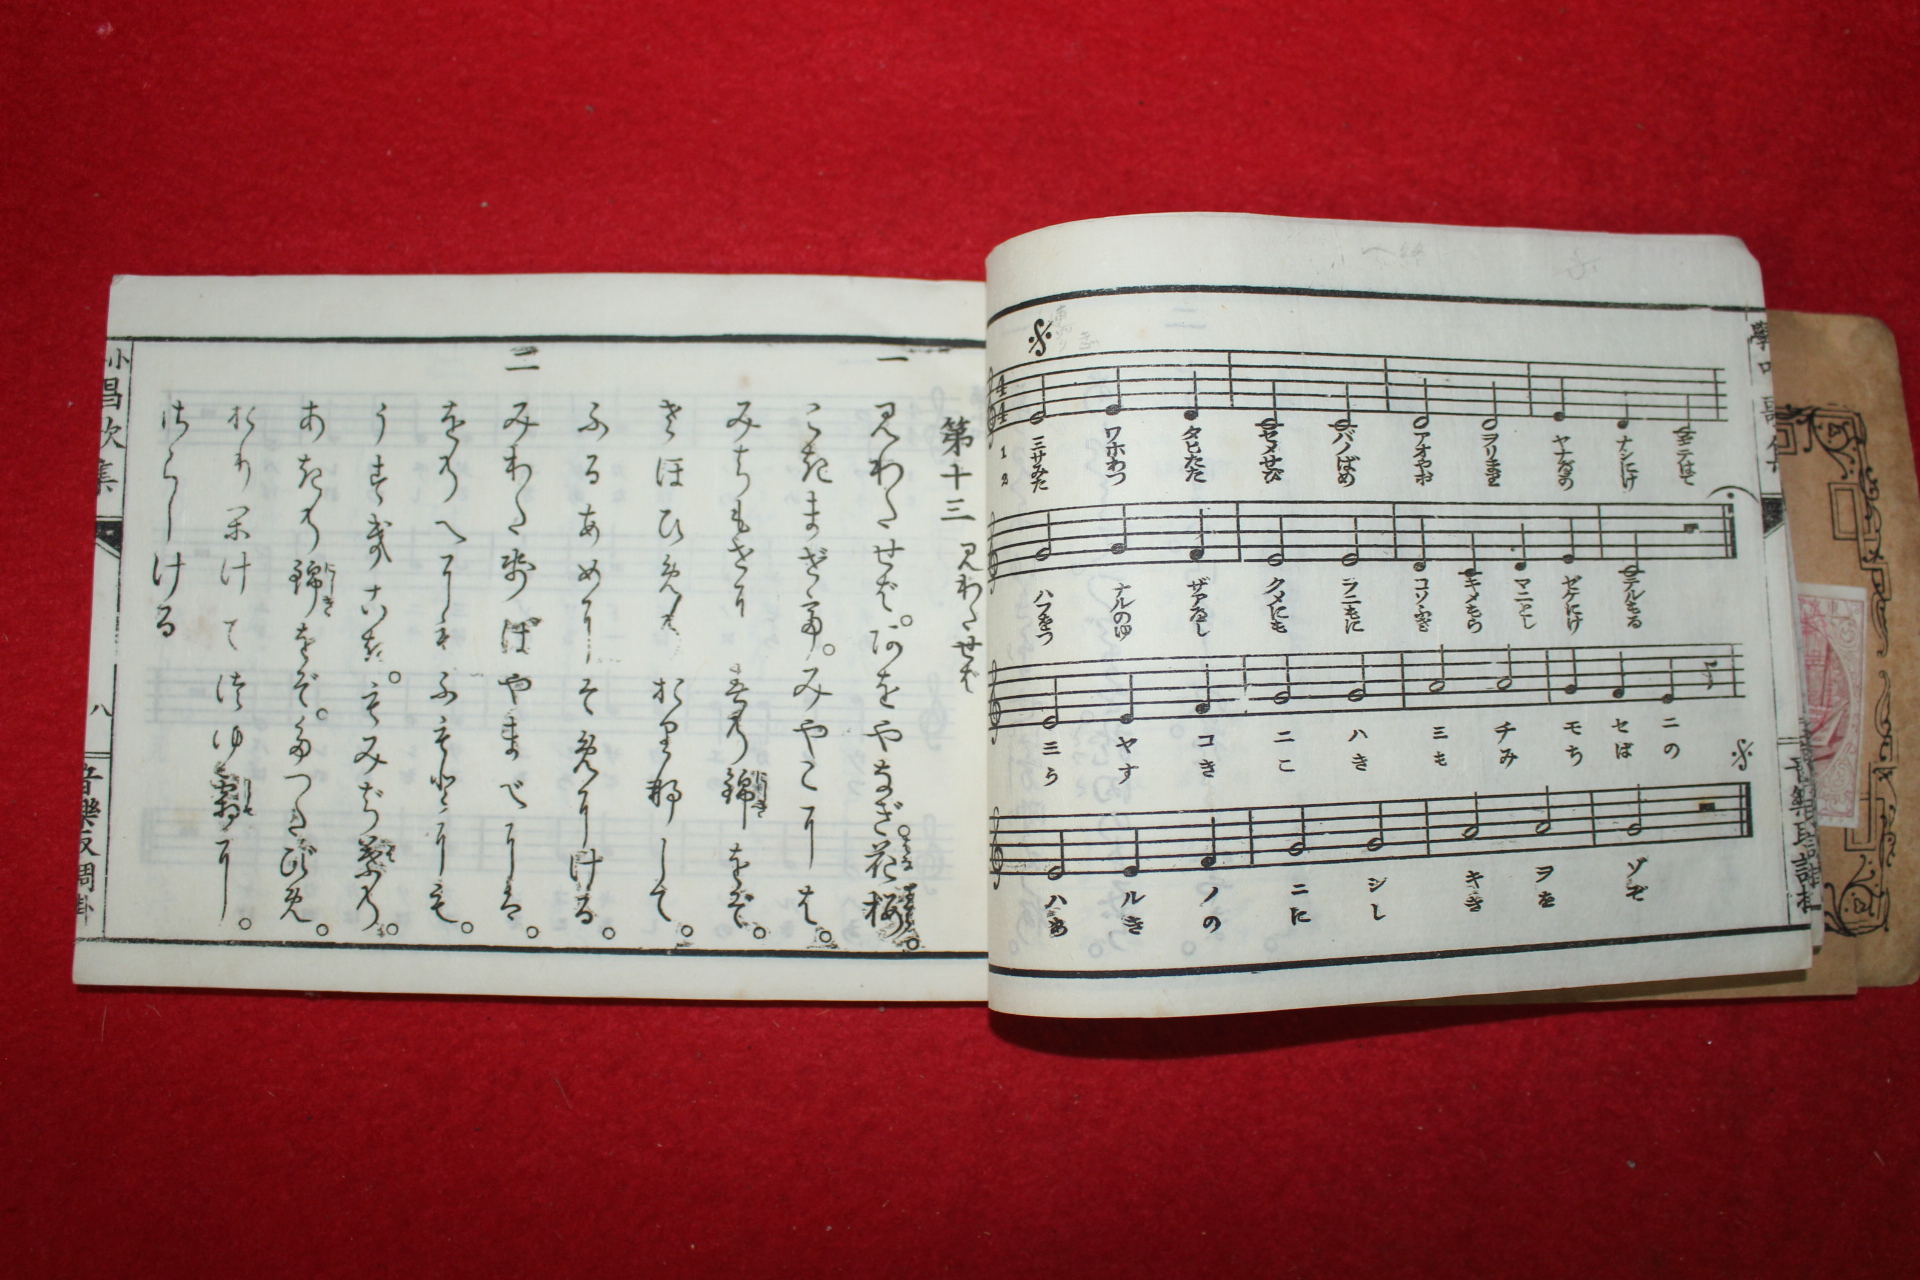 4 4
1 2
ミサみた ワホわつ タヒたた セメせび バノばめ アオやお ヲリまり ヤナべか ナシにけ ギテはて
ハフをつ ナルのゆ ザアへし クメにも ラニもに コソふさ キメもら マニとし ゼケにけ テルもる
ミう ヤす コき ニこ ハき ミも チみ モち セば ニの
ハあ ルき ノの ニに シし キき ヲを ゾぞ
第十三 見わたせば
一 見わたせば。あをやなぎ。花桜。
こきまぜて。みやこには。
みちもせに 春の錦をぞ。
さほひめの おりなして。
ふるあめに そめにける。
二 みわたせばやまべには。
をのへにもふもとにも。
うすきこき。もみぢ葉の。
あきの錦をぞ。たつたびめ。
おりかけてつゆ霜に。
さらしける
八
音樂取調掛